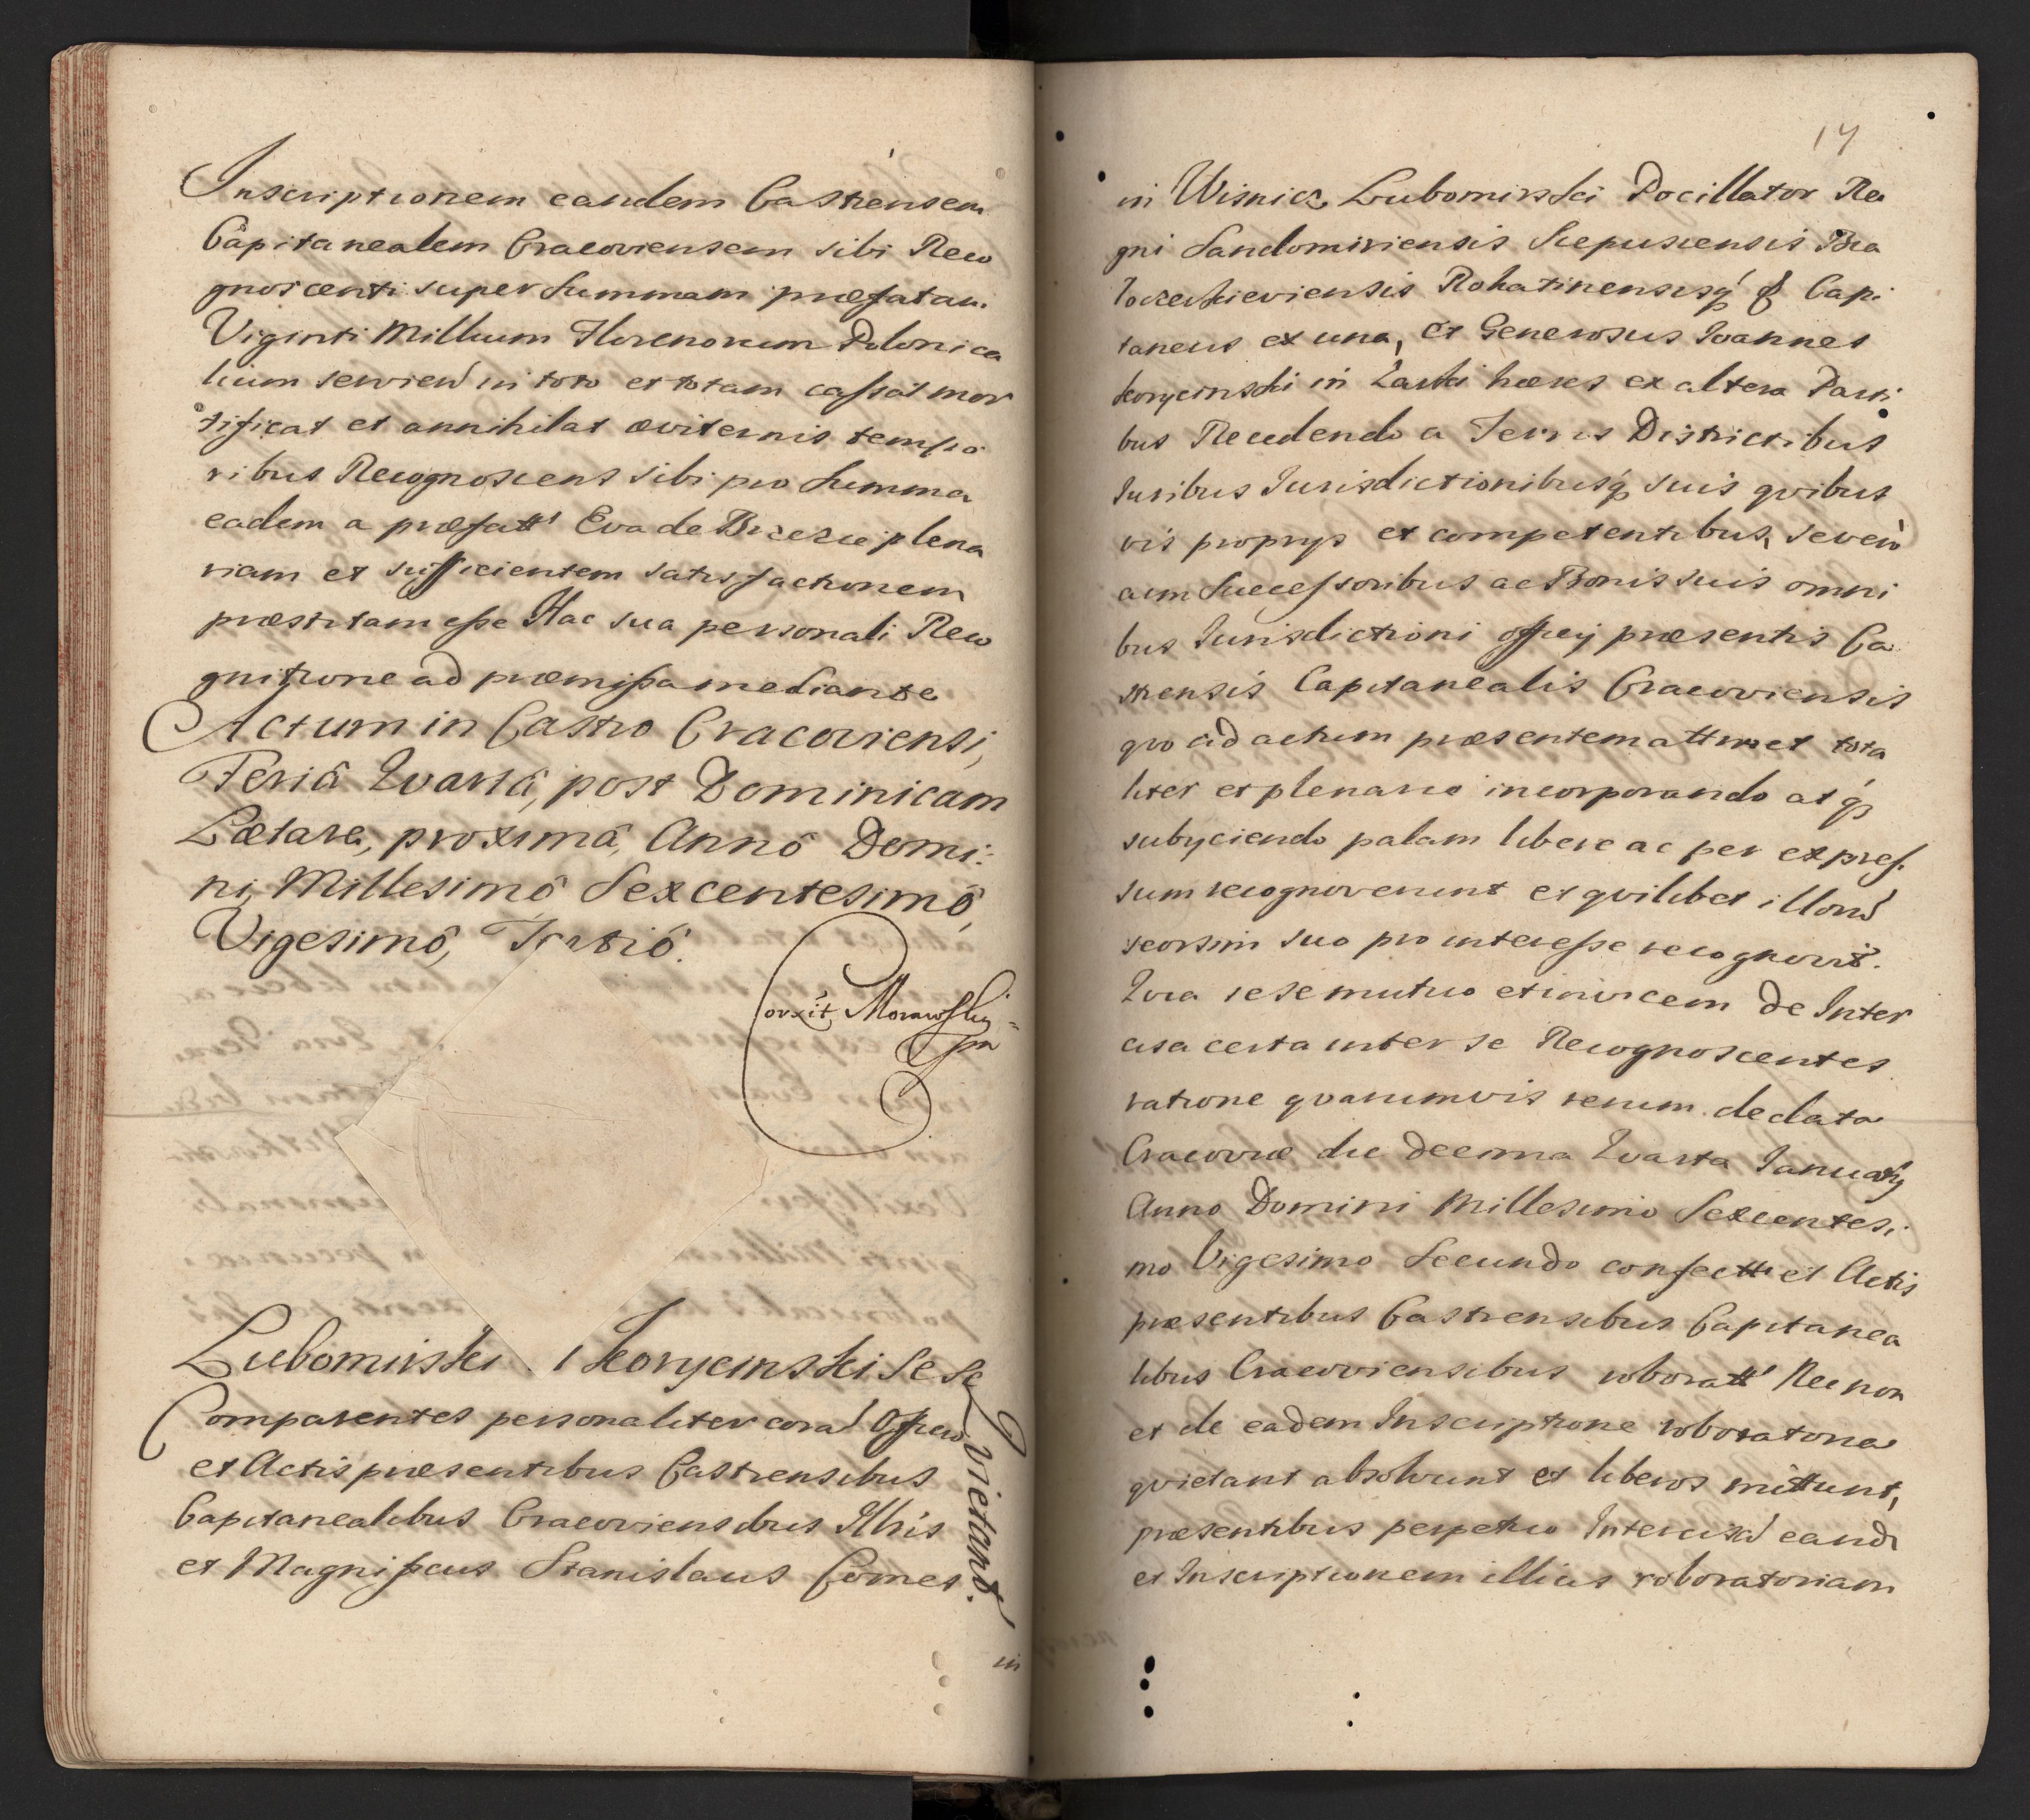 Inscriptionem eandem Castrensem
Capitanealem Cracoviensem sibi Reco
gnoscenti super Summam præfatam
Viginti Millium Florenorum Polonica
lium servien in toto et totam cassat mor
tificat et annihilat æviternis tempo
ribus Recognoscens sibi pro Summa
eadem a præfatt Eva de Brzezie plena
riam et sufficientem satisfactionem
præstitam esse Hac sua personali Reco
gnitione ad præmissa mediante
Actum in Castro Cracoviensi,
Feriâ Quartâ, post Dominicam
Lætare, proximâ, Annô Domi:
ni, Millesimô Sexcentesimô,
Vigesimô, Tertiô.
Corxit Morawski
mp
Lubomirski Korycinski Sese
Quietant.
Comparentes personaliter cora Officio
et Actis præsentibus Castrensibus
Capitanealibus Cracoviensibus Illris
et Magnificus Stanislaus Comes
in
17
in Wisnicz Lubomirski Pocillator Re
gni Sandomiriensis Scepusiensis Bia
Rohatinensisq & Capi
taneus ex una, et Generosus Ioannes
Korycinski in hæres ex altera Parti
bus Recedendo a Terris Districtibus
Iuribus Iurisdictionibusq suis quibus
vis propryis et competentibus,
acum Successoribus ac Bonis suis omni
bus Iurisdictioni officy præsentis Ca
strensis Capitanealis Cracoviensis
quo ad actum præsentem attinet tota
liter et plenarie incorporando at q
subyciendo palam libere ac per expres
sum recognoverunt et quilibet illorum
seorsim suo pro interesse recognovit.
Quia sese mutuo et invicem de Inter
cisa certa inter se Recognoscentes
ratione quarumvis rerum de data
Cracoviæ die decima Quarta January
Anno Domini Millesimo Sexcentesi
mo Vigesimo Secundo confectt et Actis
præsentibus Castrensibus Capitanea
libus Cracoviensibus roboratt Nec non
et de eadem Inscriptione roboratoria
quietant absolvunt et liberos mittunt,
præsentibus perpetuo Intercisa eand
et Inscriptionem illius roboratoriam